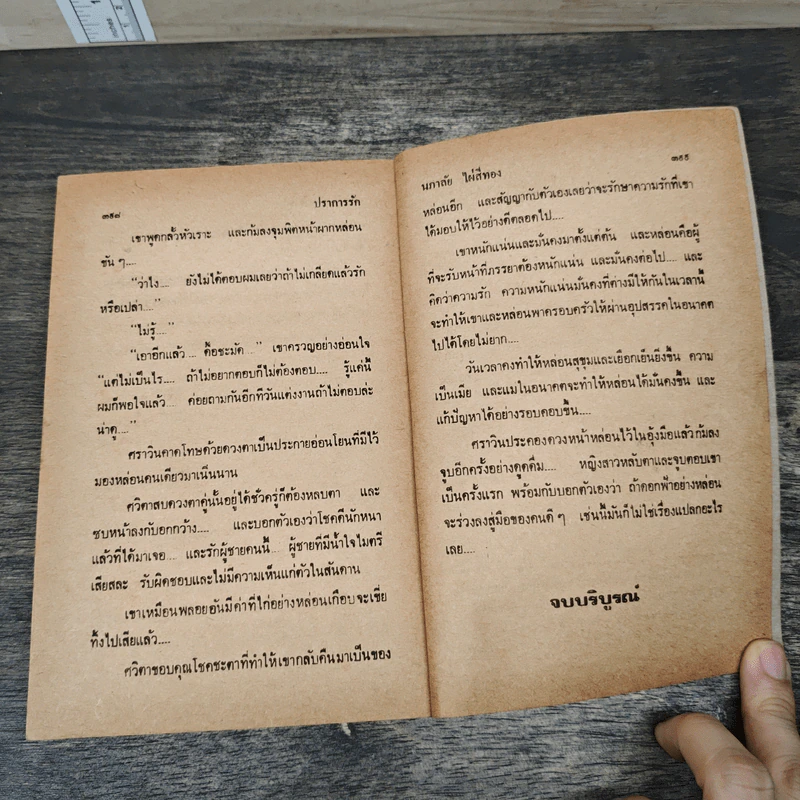 ๓๕๘ ปราการรัก
เขาพูดกลั้วหัวเราะ และก้มลงจุมพิตหน้าผากหล่อน
ขัน ๆ....
“ว่าไง.... ยังไม่ได้ตอบผมเลยว่าถ้าไม่เกลียดแล้วรัก
หรือเปล่า....”
“ไม่รู้....”
“เอาอีกแล้ว.... ดื้อชะมัด....” เขาครวญอย่างอ่อนใจ
“แต่ไม่เป็นไร.... ถ้าไม่อยากตอบก็ไม่ต้องตอบ.... รู้แค่นี้
ผมก็พอใจแล้ว.... ค่อยถามกันอีกทีวันแต่งงานถ้าไม่ตอบล่ะ
น่าดู....”
ศราวินคาดโทษด้วยดวงตาเป็นประกายอ่อนโยนที่มีไว้
มองหล่อนคนเดียวมาเนิ่นนาน
ศวิตาสบดวงตาคู่นั้นอยู่ได้ชั่วครู่ก็ต้องหลบตา และ
ซบหน้าลงกับอกกว้าง.... และบอกตัวเองว่าโชคดีนักหนา
แล้วที่ได้มาเจอ.... และรักผู้ชายคนนี้.... ผู้ชายที่มีน้ำใจไมตรี
เสียสละ รับผิดชอบและไม่มีความเห็นแก่ตัวในสันดาน
เขาเหมือนพลอยอันมีค่าที่ไก่อย่างหล่อนเกือบจะเขี่ย
ทิ้งไปเสียแล้ว....
ศวิตาขอบคุณโชคชะตาที่ทำให้เขากลับคืนมาเป็นของ
นภาลัย ไผ่สีทอง ๓๕๙
หล่อนอีก และสัญญากับตัวเองเลยว่าจะรักษาความรักที่เขา
ได้มอบให้ไว้อย่างดีตลอดไป....
เขาหนักแน่นและมั่นคงมาตั้งแต่ต้น และหล่อนคือผู้
ที่จะรับหน้าที่ภรรยาต้องหนักแน่น และมั่นคงต่อไป.... และ
คิดว่าความรัก ความหนักแน่นมั่นคงที่ต่างมีให้กันในเวลานี้
จะทำให้เขาและหล่อนพาครอบครัวให้ผ่านอุปสรรคในอนาคต
ไปได้โดยไม่ยาก....
วันเวลาคงทำให้หล่อนสุขุมและเยือกเย็นยิ่งขึ้น ความ
เป็นเมีย และแม่ในอนาคตจะทำให้หล่อนได้มั่นคงขึ้น และ
แก้ปัญหาได้อย่างรอบคอบขึ้น....
ศราวินประคองดวงหน้าหล่อนไว้ในอุ้งมือแล้วก้มลง
จูบอีกครั้งอย่างดูดดื่ม.... หญิงสาวหลับตาและจูบตอบเขา
เป็นครั้งแรก พร้อมกับบอกตัวเองว่า ถ้าดอกฟ้าอย่างหล่อน
จะร่วงลงสู่มือของคนดี ๆ เช่นนี้มันก็ไม่ใช่เรื่องแปลกอะไร
เลย....
จบบริบูรณ์